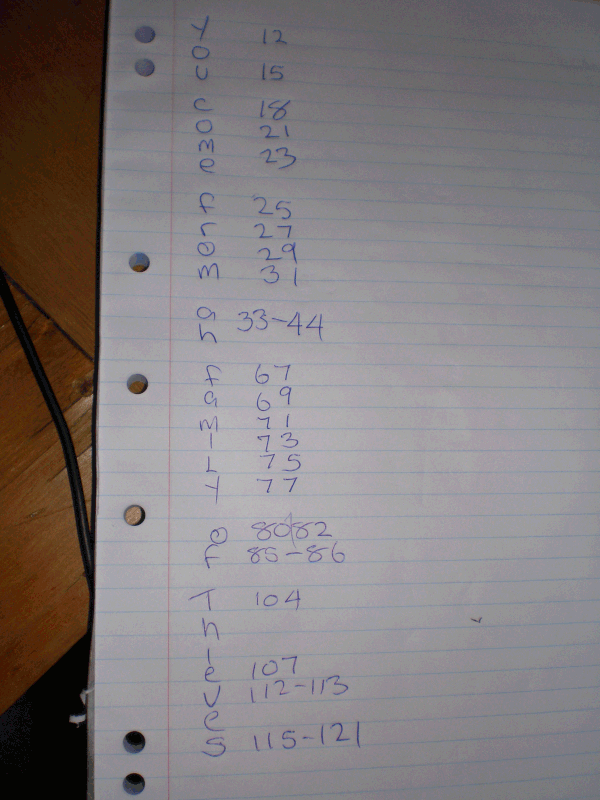 Y 12
o
u 15
C 18
o 21
m 23
e
F 25
r 27
o 29
m 31
a 33-44
n
F 67
a 69
m 71
i 73
L 75
Y 77
o 80/82
F 85-86
T 104
h
i
e 107
v 112-113
e
S 115-121